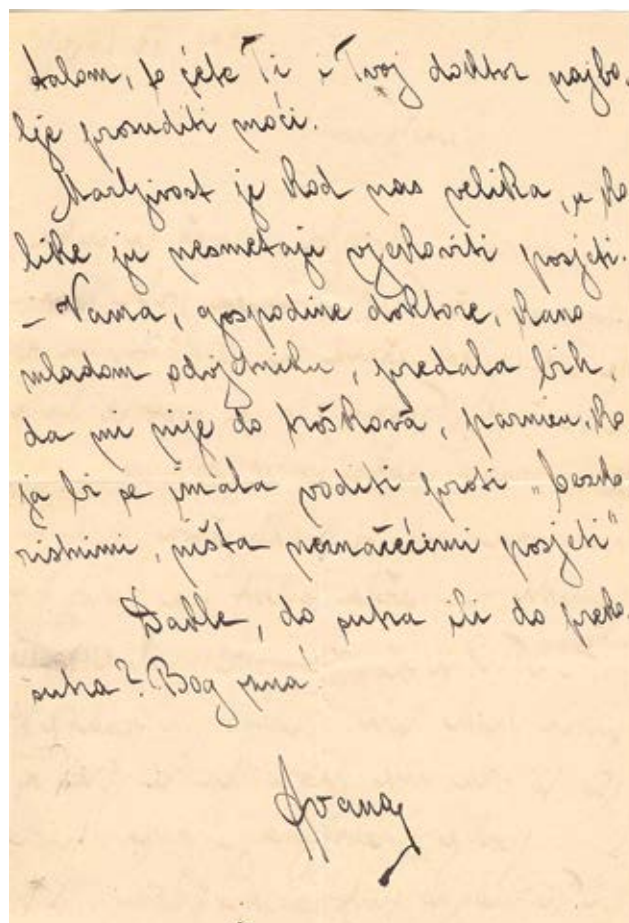 talom, to ćete Ti i Tvoj doktor najbo
lje prosuditi moći.
Marljivost je kod nas velika, u ko
like ju nesmetaju vjekoviti posjeti.
– Vama, gospodine doktore, kano
mladom odvjetniku, predala bih,
da mi nije do troškova, parnicu, ko
ja bi se imala voditi proti „bezko
ristnimi, ništa neznačećimi posjeti"
Dakle, do sutra ili do preko
sutra? Bog zna!
Ivana